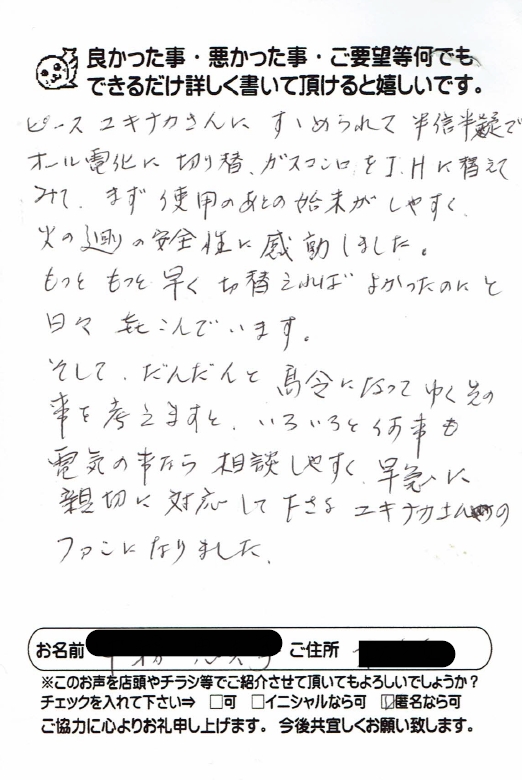 良かった事・悪かった事・ご要望等何でも
できるだけ詳しく書いて頂けると嬉しいです。
ピース ユキナカさんに すゝめられて 半信半疑で
オール電化に 切り替、ガスコンロをI.Hに替えて
みて、まず 使用のあとの始末がしやすく、
火の廻りの安全性に感動しました。
もっと もっと 早く 切替えれば よかったのにと
日々 㐂こんでいます。
そして、だんだんと 高令になって ゆく先の
事を考えますと、いろいろと何事も
電気の事なら 相談しやすく、早急に
親切に 対応して下さる ユキナカさんの
ファンになりました。
お名前 ご住所
※このお声を店頭やチラシ等でご紹介させて頂いてもよろしいでしょうか?
チェックを入れて下さい⇒ □可 □イニシャルなら可 ☑匿名なら可
ご協力に心よりお礼申し上げます。 今後共宜しくお願い致します。